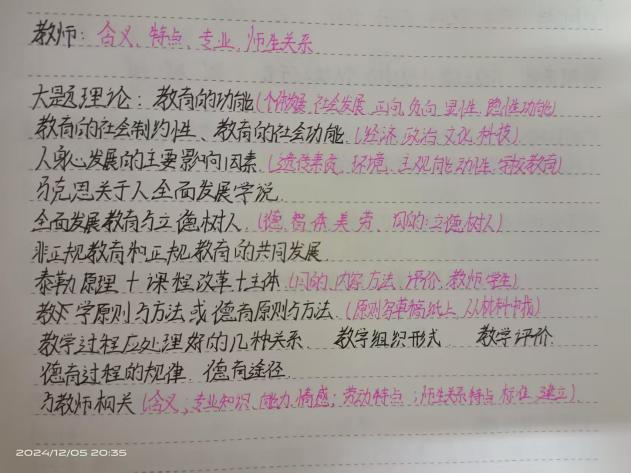 教师：含义、特点、专业、师生关系
大题理论：教育的功能（个体发展、社会发展 正向、负向 显性、隐性功能）
教育的社会制约性、教育的社会功能（经济 政治 文化 科技）
人身心发展的主要影响因素（遗传素质、环境、主观能动性、学校教育）
马克思关于人全面发展学说
全面发展教育与立德树人（德、智 体 美 劳、目的：立德树人）
非正规教育和正规教育的共同发展
泰勒原理+课程改革+主体（目的、内容、方法、评价、教师、学生）
教学原则与方法或德育原则与方法（原则写草稿纸上，从材料中找）
教学过程应处理好的几种关系 教学组织形式 教学评价
德育过程的规律 德育途径
与教师相关（含义；专业知识、能力、情感；劳动特点；师生关系特点、标准、建立）
2024/12/05 20:35